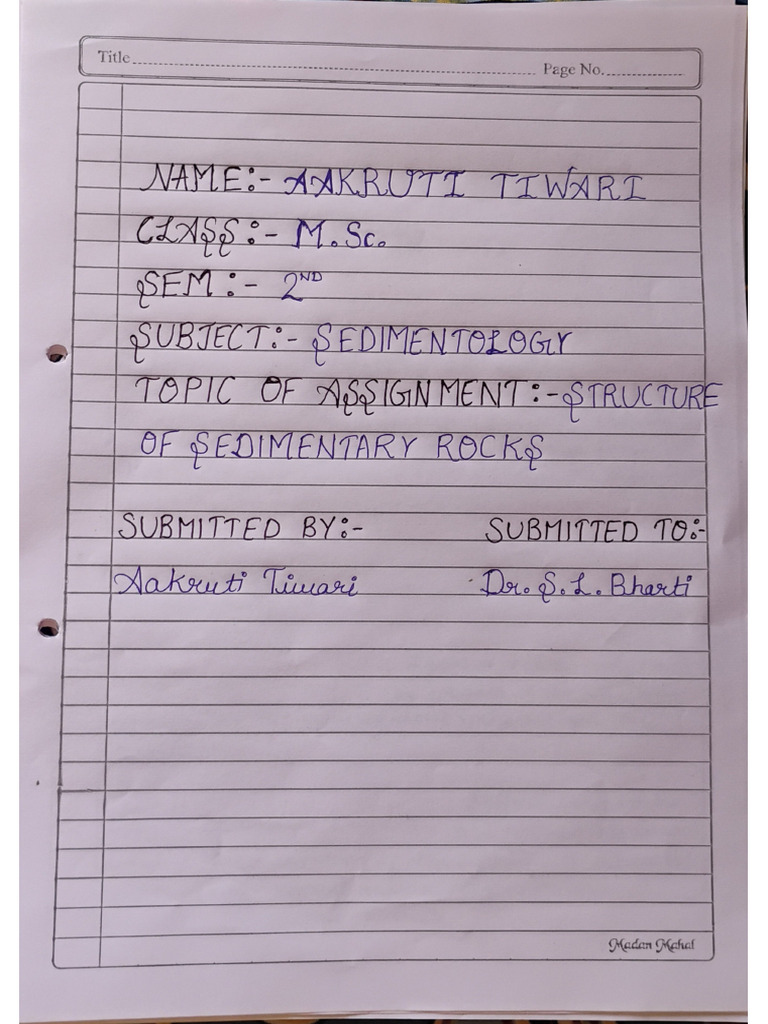 Title
Page No.
NAME:- AAKRUTI TIWARI
CLASS:- M.Sc.
SEM:- 2ND
SUBJECT:- SEDIMENTOLOGY
TOPIC OF ASSIGNMENT:- STRUCTURE
OF SEDIMENTARY ROCKS
SUBMITTED BY:- SUBMITTED TO:-
Aakruti Tiwari Dr. S. L. Bharti
Madan Mahal